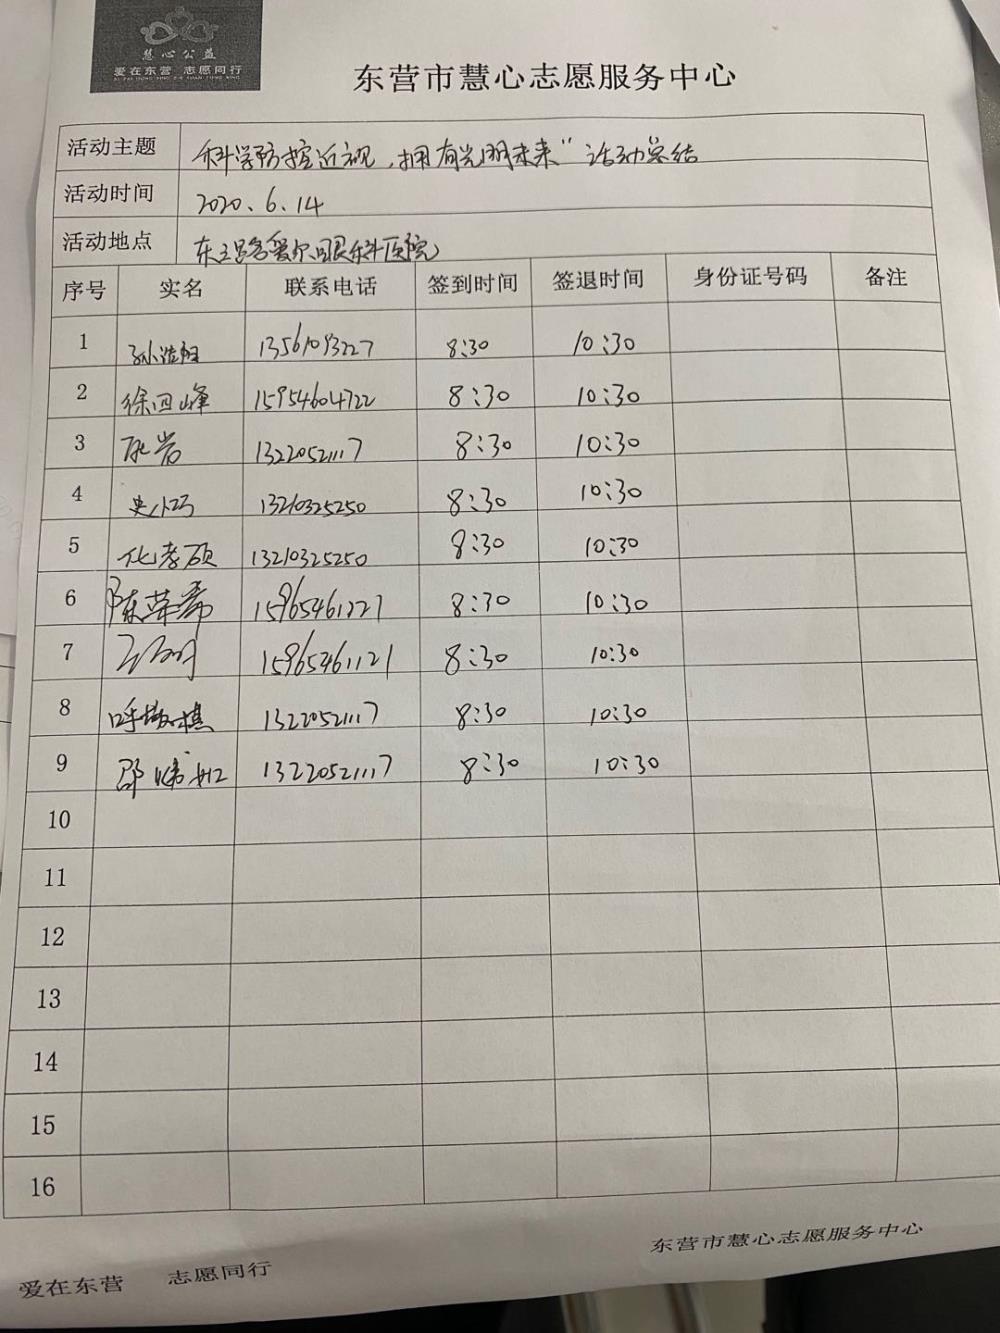 慧心公益
爱在东营 志愿同行
东营市慧心志愿服务中心
活动主题 科学防控近视,拥有光明未来"活动总结
活动时间 2020.6.14
活动地点 东三路爱尔眼科医院
序号 实名 联系电话 签到时间 签退时间 身份证号码 备注
1 13561093227 8:30 10:30
2 徐四峰 15954604722 8:30 10:30
3 13220521117 8:30 10:30
4 史小巧 13210325250 8:30 10:30
5 化孝硕 13210325250 8:30 10:30
6 陈荣希 15965461221 8:30 10:30
7 15965461121 8:30 10:30
8 13220521117 8:30 10:30
9 13220521117 8:30 10:30
10
11
12
13
14
15
16
东营市慧心志愿服务中心
爱在东营 志愿同行